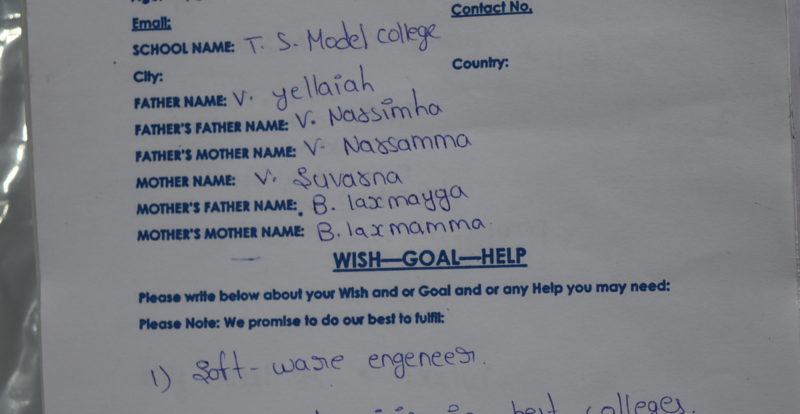 Email:
Contact No.
SCHOOL NAME: T. S. Model college
City:
Country:
FATHER NAME: V. yellaiah
FATHER'S FATHER NAME: V. Narsimha
FATHER'S MOTHER NAME: V. Narsamma
MOTHER NAME: V. Suvarna
MOTHER'S FATHER NAME: B. laxmayya
MOTHER'S MOTHER NAME: B. laxmamma.
WISH—GOAL—HELP
Please write below about your Wish and or Goal and or any Help you may need:
Please Note: We promise to do our best to fulfil:
1) Soft-ware engeneer.
best colleges.